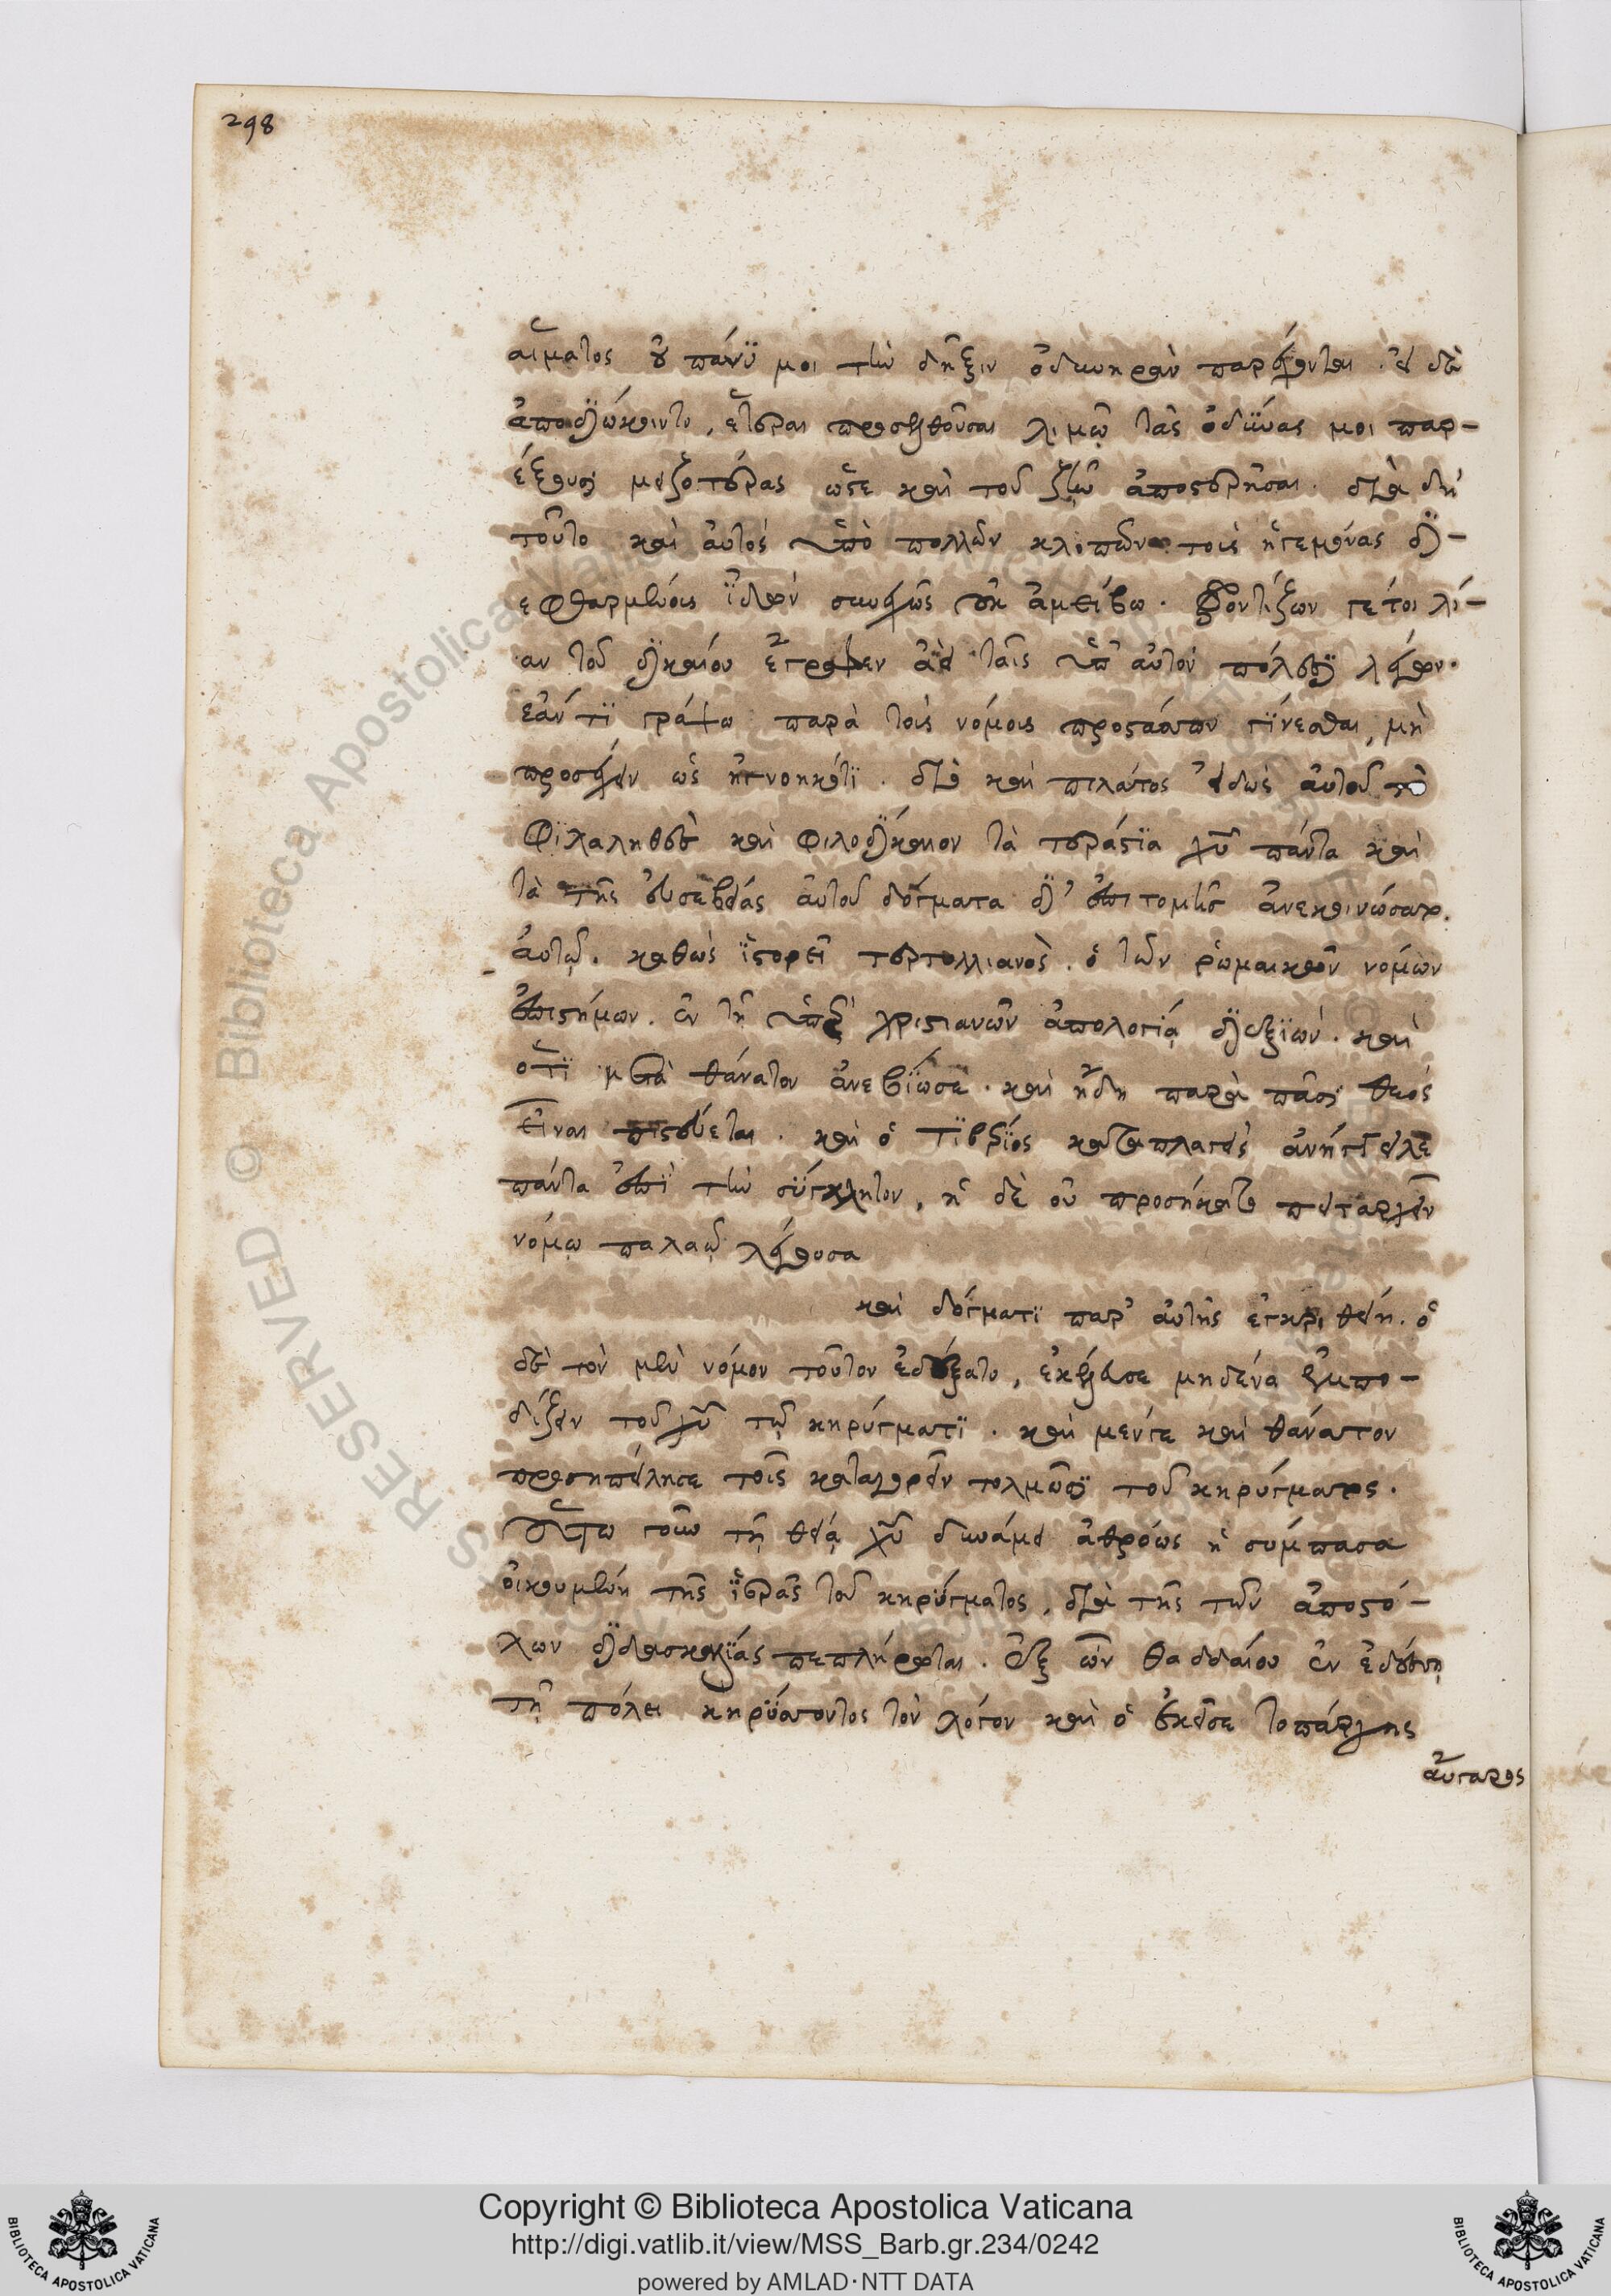 298
αἵματος οὐ πάνυ μοι τὴν δῆξιν ὀδυνηρὰν παρέχονται. εἰ δὲ
ἀποδιώκοιντο, ἕτεραι προσελθοῦσαι λιμῷ τὰς ὀδύνας μοι παρ-
έξουσι μειζοτέρας ὥστε καὶ τοῦ ζῆν ἀποστερῆσαι. διὰ δὴ
τοῦτο καὶ αὐτὸς ὑπὸ πολλῶν κλοπῶν τοὺς ἡγεμόνας δι-
εφθαρμένους ἰδὼν συχνῶς οὐκ ἀμείβω. φροντίζων γέτοι λί-
αν τοῦ δικαίου ἔγραφεν ἀεὶ ταῖς ὑπ' αὐτὸν πόλεσι λέγων.
ἐάν τι γράψω παρὰ τοῖς νόμοις προστάττων γίνεσθαι, μὴ
προσέχειν ὡς ἠγνοηκότι. διὸ καὶ πιλάτος εἰδὼς αὐτοῦ τὸ
φιλάληθες καὶ φιλοδίκαιον τὰ τεράστια χυ πάντα καὶ
τὰ τῆς εὐσεβείας αὐτοῦ δόγματα δι' ἐπιτομῆς ἀνεκοινώσατο
αὐτῷ. καθὼς ἱστορεῖ τερτολλιανὸς. ὁ τῶν ῥωμαικῶν νομων
ἐπιστήμων. ἐν τῇ ὑπὲρ χριστιανῶν ἀπολογίᾳ διεξιὼν. καὶ
ὅτι μετὰ θάνατον ἀνεβίωσε. καὶ ἤδη παρὰ πᾶσι θεὸς
εἶναι πιστεύεται. καὶ ὁ τιβέριος καταπλαγεὶς ἀνήγγειλε
πάντα ἐπὶ τὴν σύγκλητον, ἡ δὲ οὐ προσήκατο πειταρχεῖν
νόμῳ παλαιῷ λέγουσα
καὶ δόγματι παρ' αὐτῆς ἐγκριθείη. ὁ
δὲ τὸν μὲν νόμον τοῦτον ἐδέξατο, ἐκέλευσε μηδένα ἐμπο-
δίζειν τοῦ χυ τῷ κηρύγματι. καὶ μέντε καὶ θάνατον
προσηπείλησε τοῖς κατηγορεῖν τολμῶσι τοῦ κηρύγματος.
οὕτω τοίνυν τῇ θείᾳ χυ δυνάμει ἀθρόως ἡ σύμπασα
οἰκουμένη τῆς ἱερᾶς τοῦ κηρύγματος, διὰ τῆς τῶν ἀποστό-
λων διδασκαλίας πεπλήρωται. ἐξ ὧν θαδδαίου ἐν ἐδέσῃ
τῇ πόλει κηρύττοντος τὸν λόγον καὶ ὁ ἐκεῖσε τοπάρχης
αὔγαρος
Copyright © Biblioteca Apostolica Vaticana
http://digi.vatlib.it/view/MSS_Barb.gr.234/0242
powered by AMLAD·NTT DATA
BIBLIOTECA APOSTOLICA VATICANA
BIBLIOTECA APOSTOLICA VATICANA